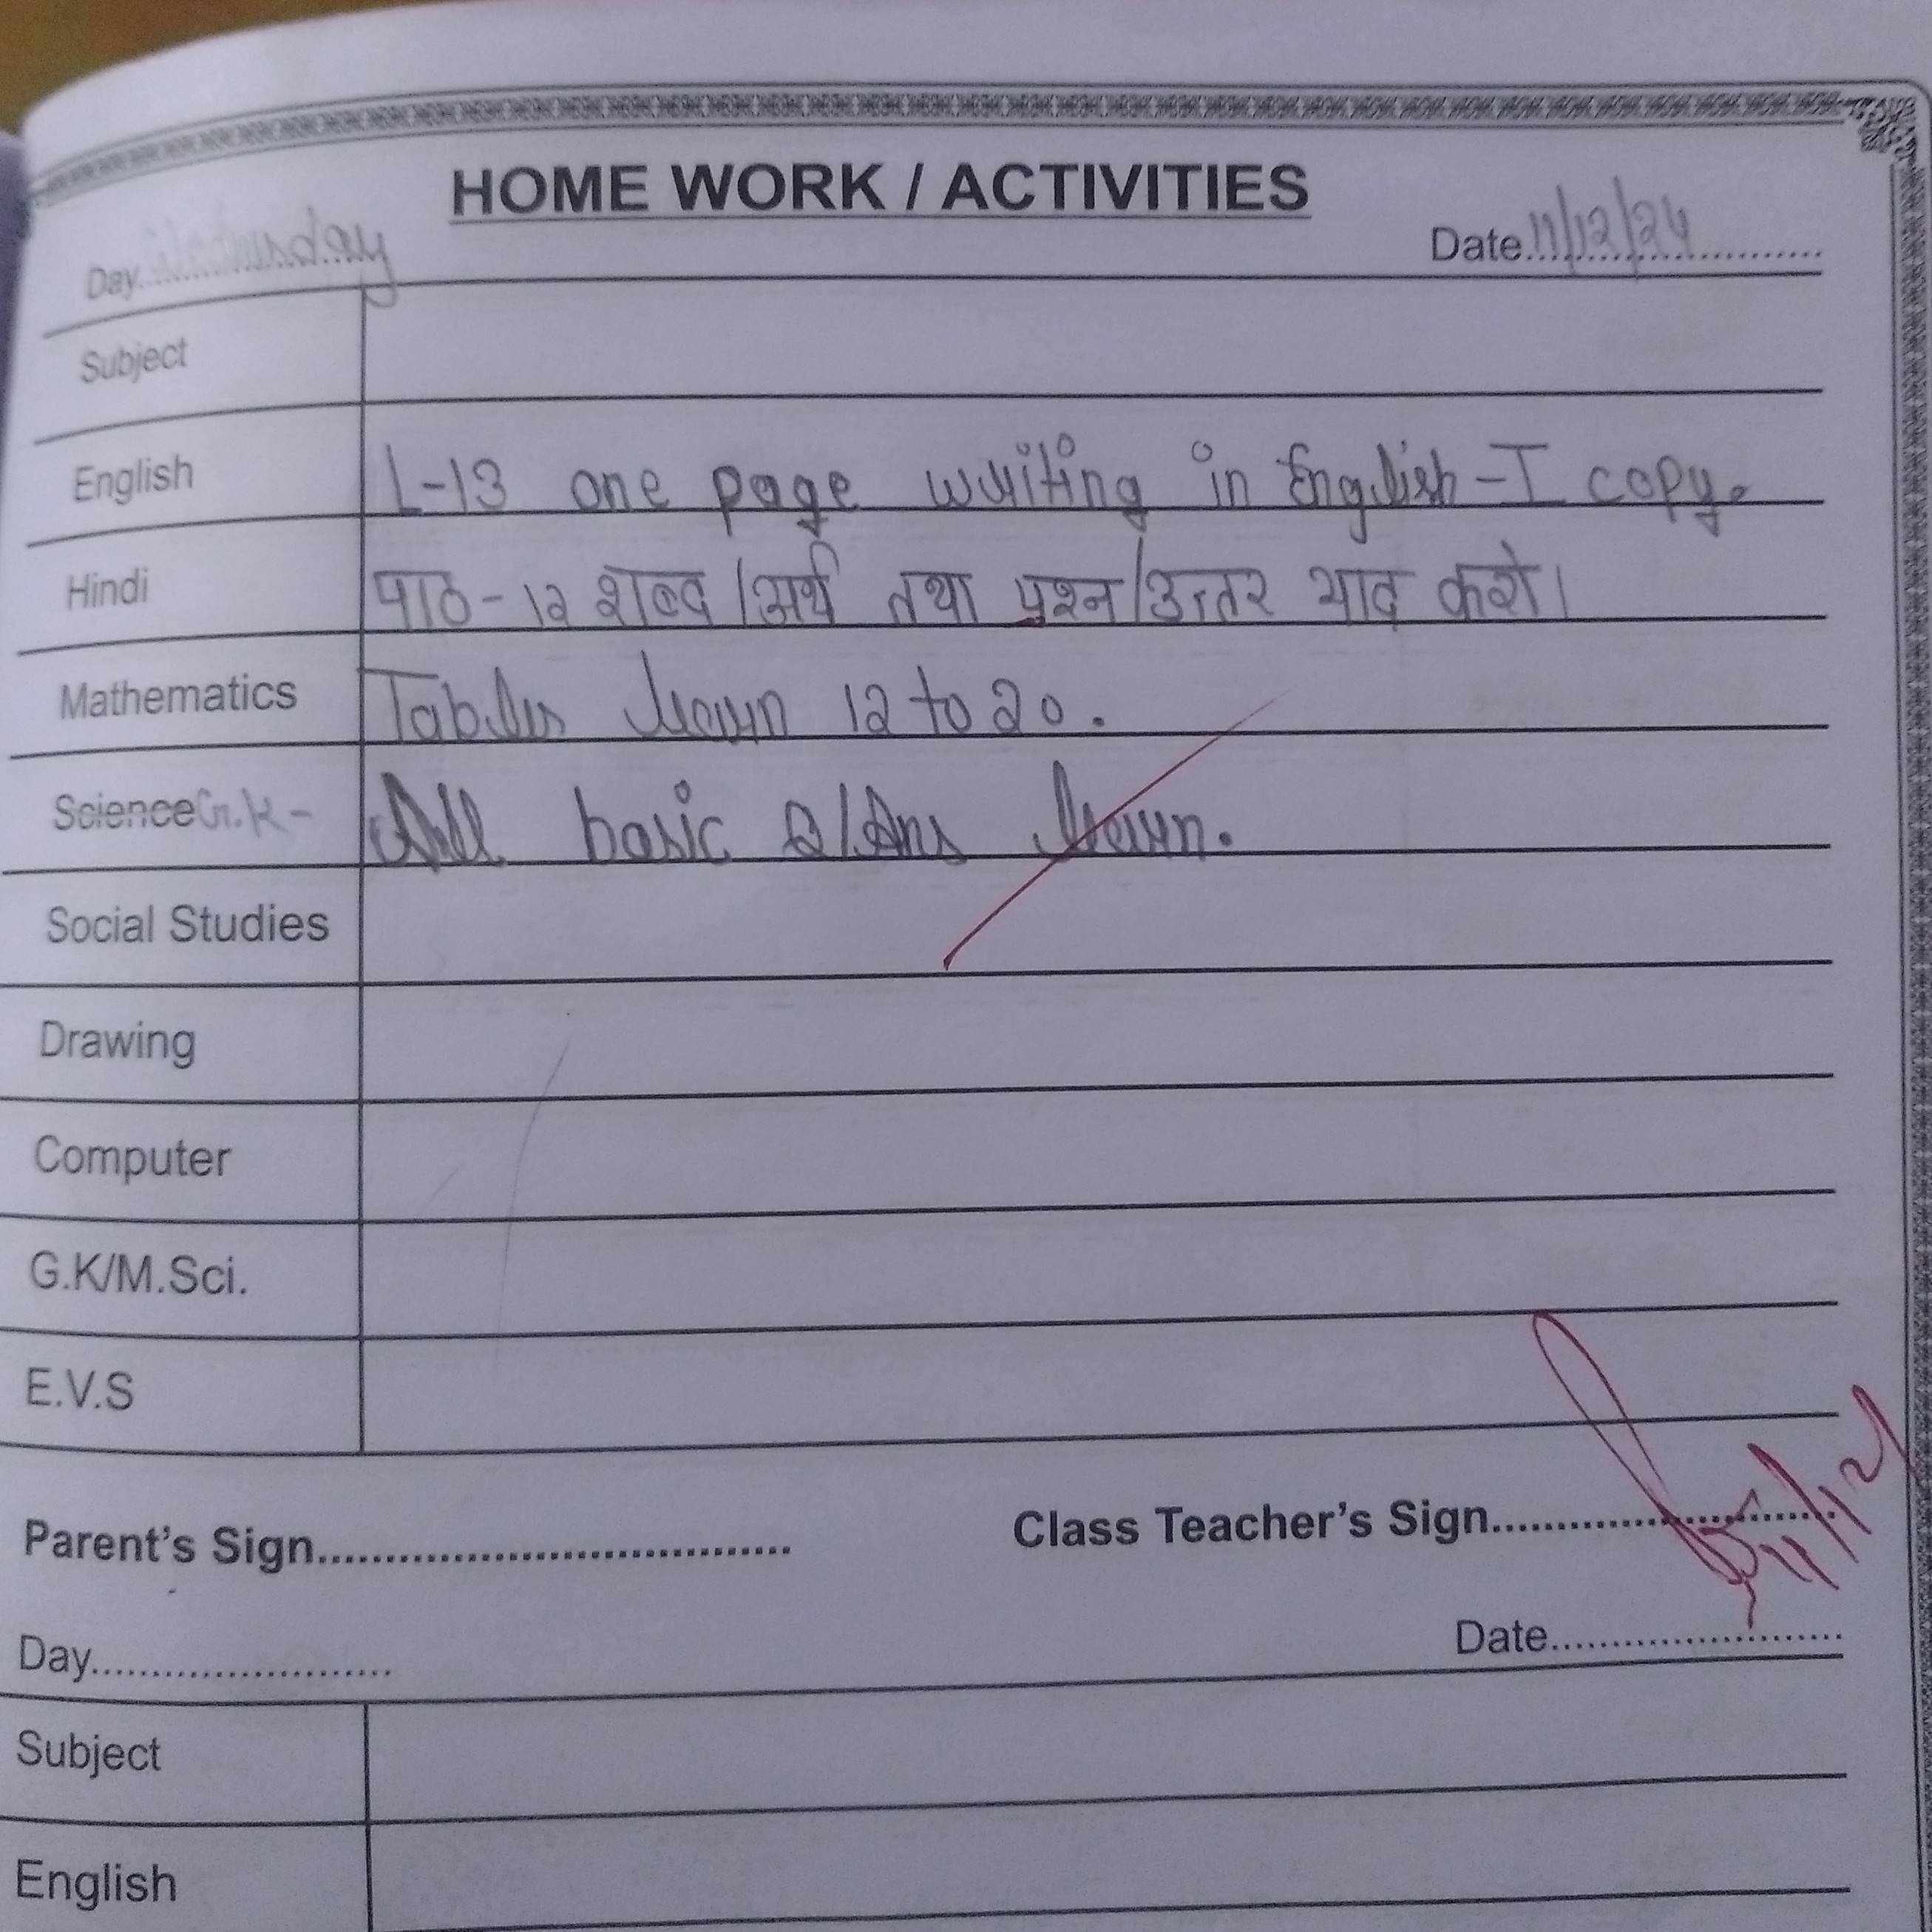 HOME WORK / ACTIVITIES
Day Wednesday Date 11/12/24
Subject
English L-13 one page writing in English-I copy.
Hindi पाठ-12 शब्द/अर्थ तथा प्रश्न/उत्तर याद करो।
Mathematics Tables learn 12 to 20.
Science G.K- All basic Q/Ans learn.
Social Studies
Drawing
Computer
G.K/M.Sci.
E.V.S
Parent's Sign.................................... Class Teacher's Sign..........................
11/12
Day......................... Date........................
Subject
English